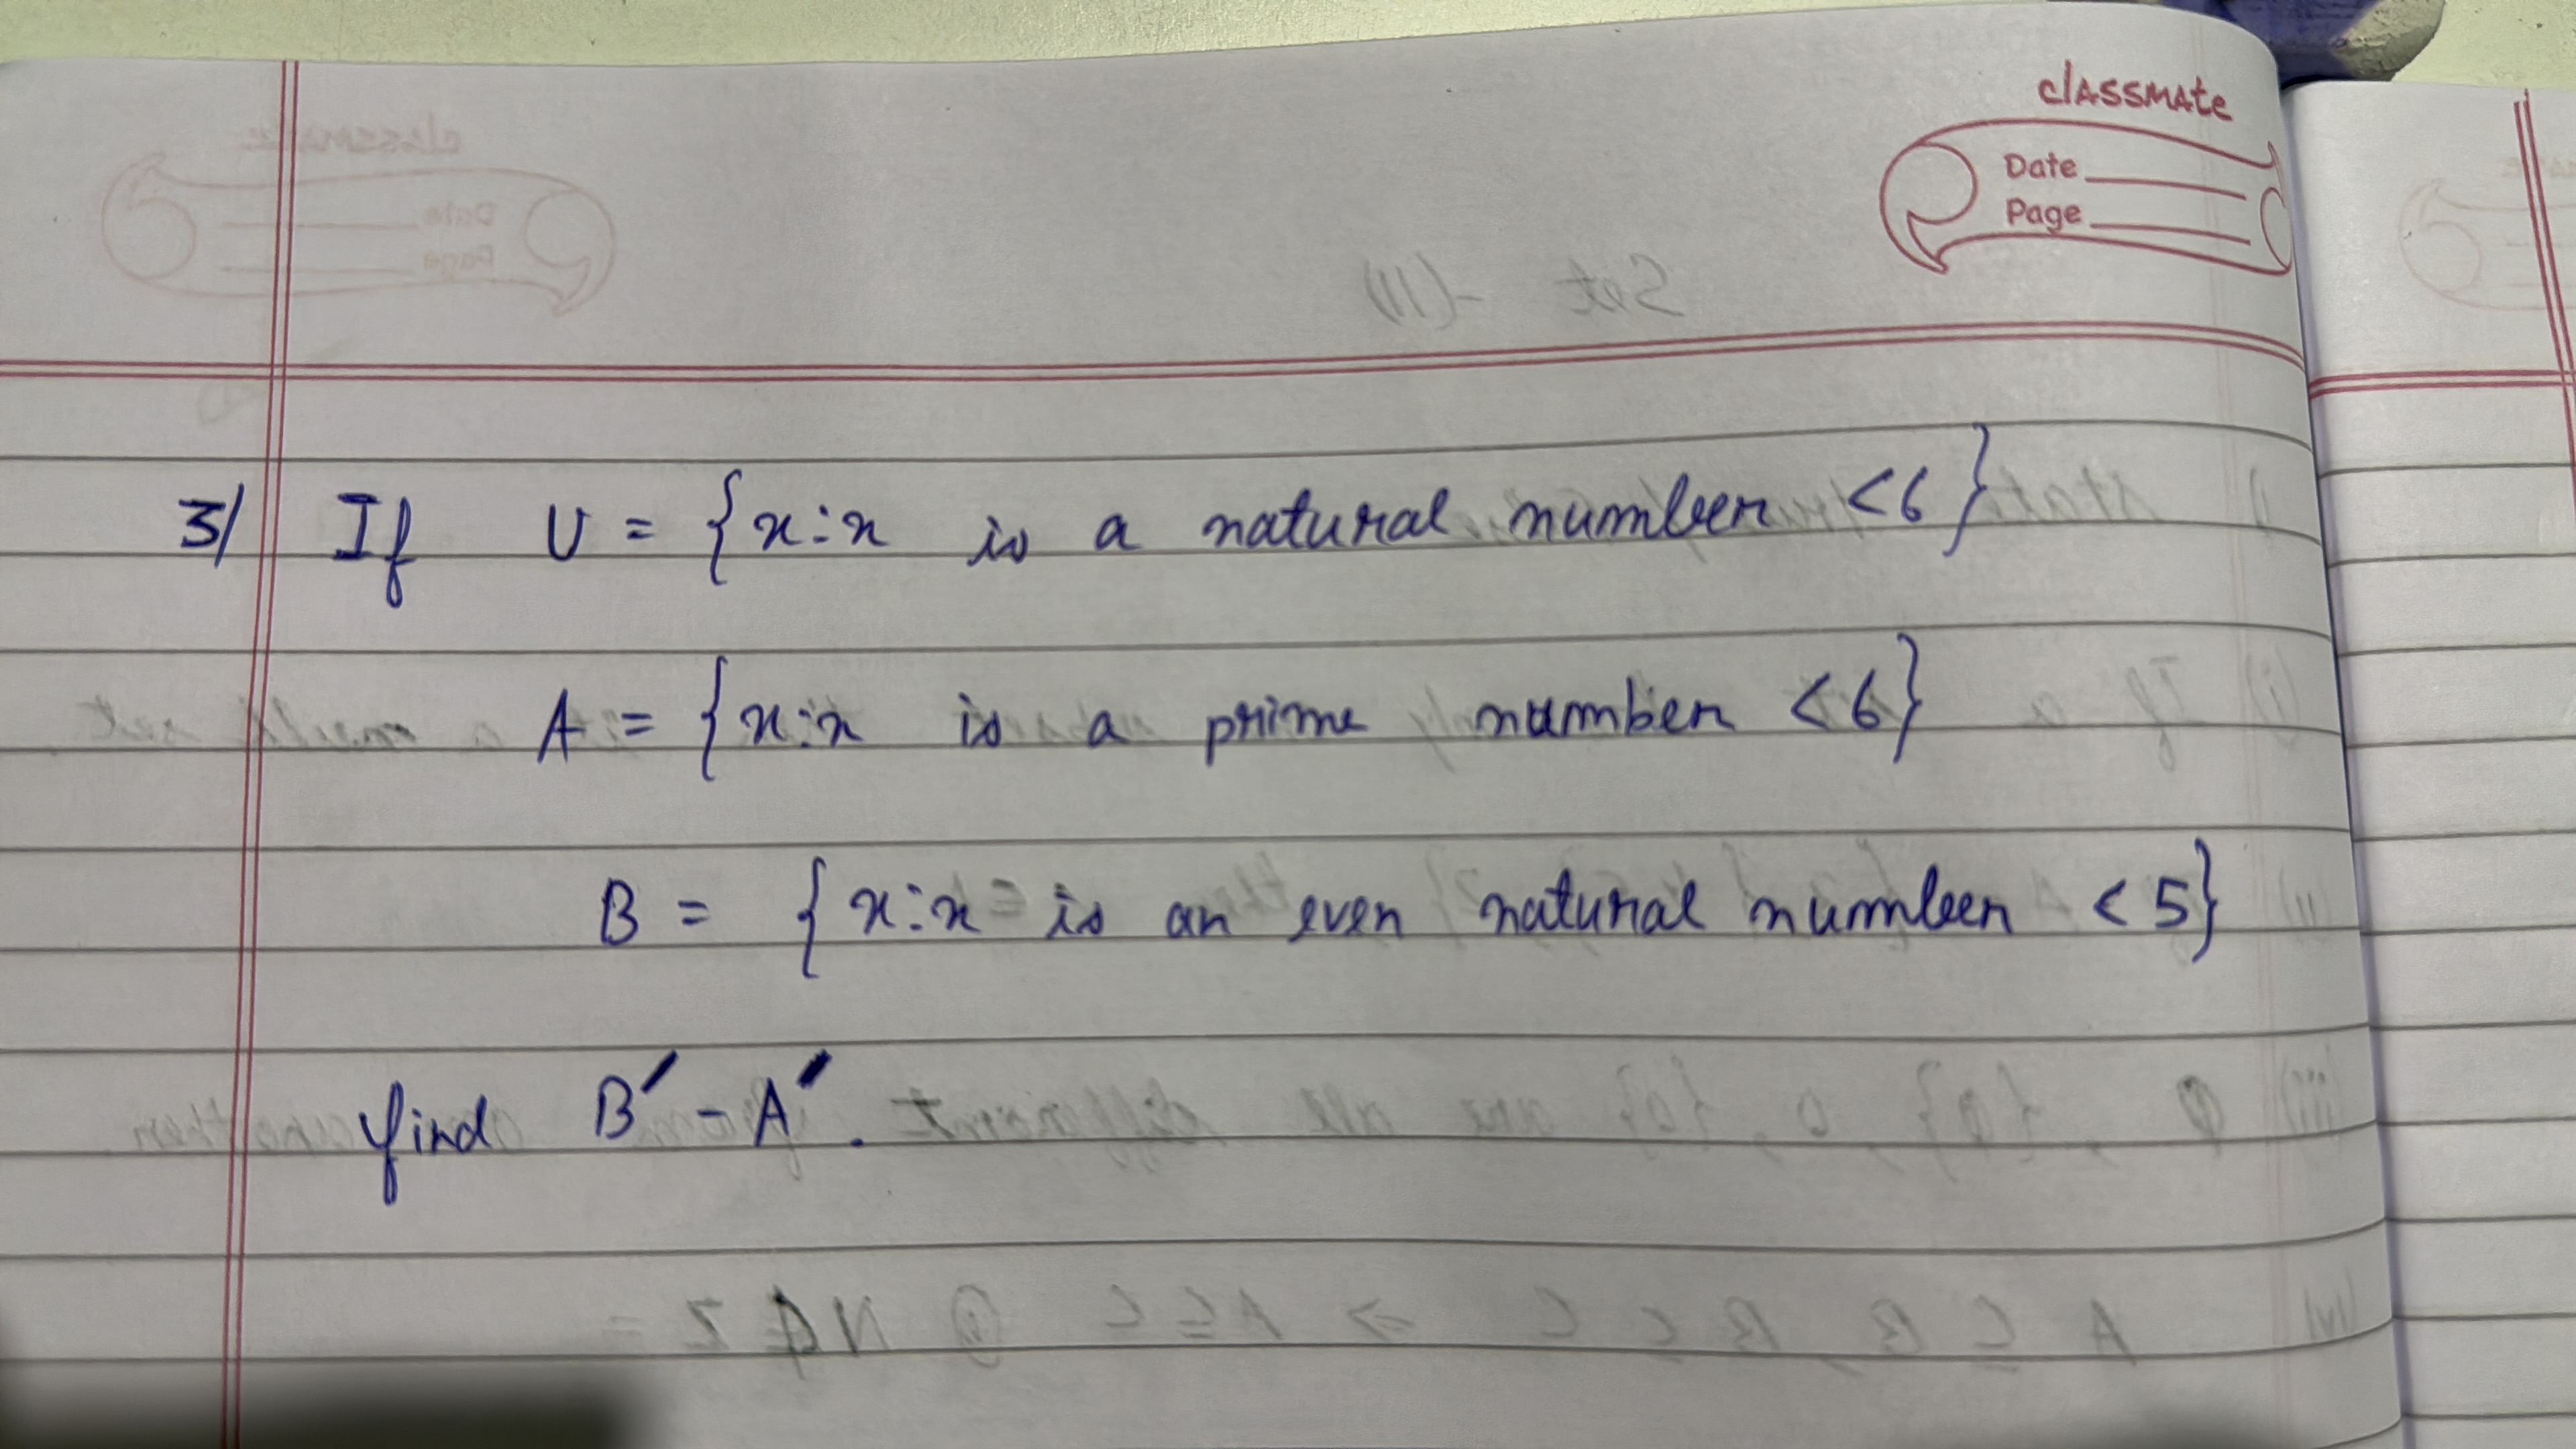 classmate
Date
Page
3/ If U = {x:x is a natural number <6}
A = {x:x is a prime number <6}
B = {x:x is an even natural number <5}
find B' - A'.